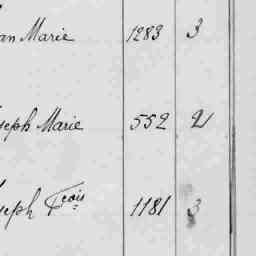 an Marie 1283 3
seph Marie 552 2
seph Fcois 1181 3